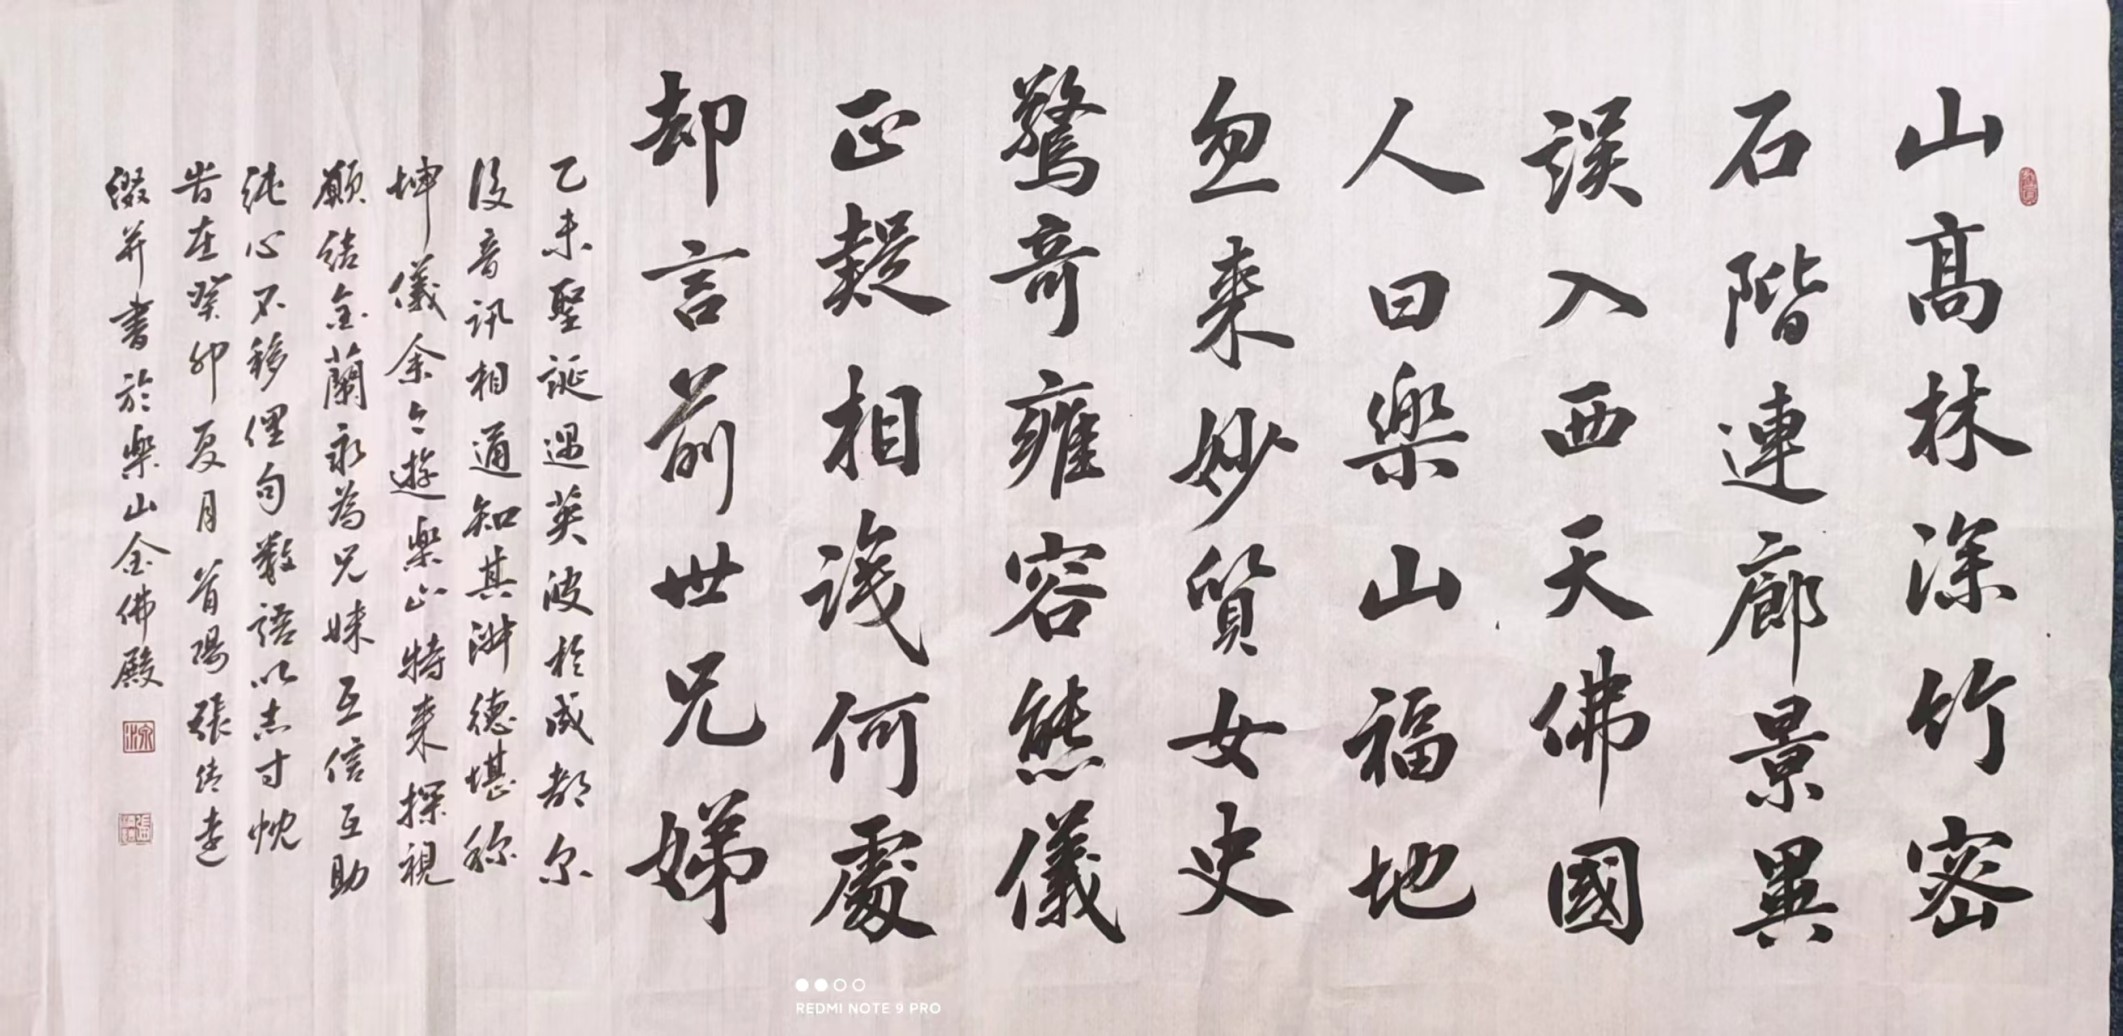 山高林深竹密
石階連廊景異
誤入西天佛國
人曰樂山福地
忽來妙質女史
驚奇雍容態儀
正疑相識何處
却言前世兄娣
乙未聖誕遇英波於成都尔
後音訊相通知其淋德堪称
坤儀余今遊樂山特来探視
願結金蘭永為兄妹互信互助
純心不移俚句數語以志寸忱
皆在癸卯夏月首陽張清
綴并書於樂山金佛殿
REDMI NOTE 9 PRO